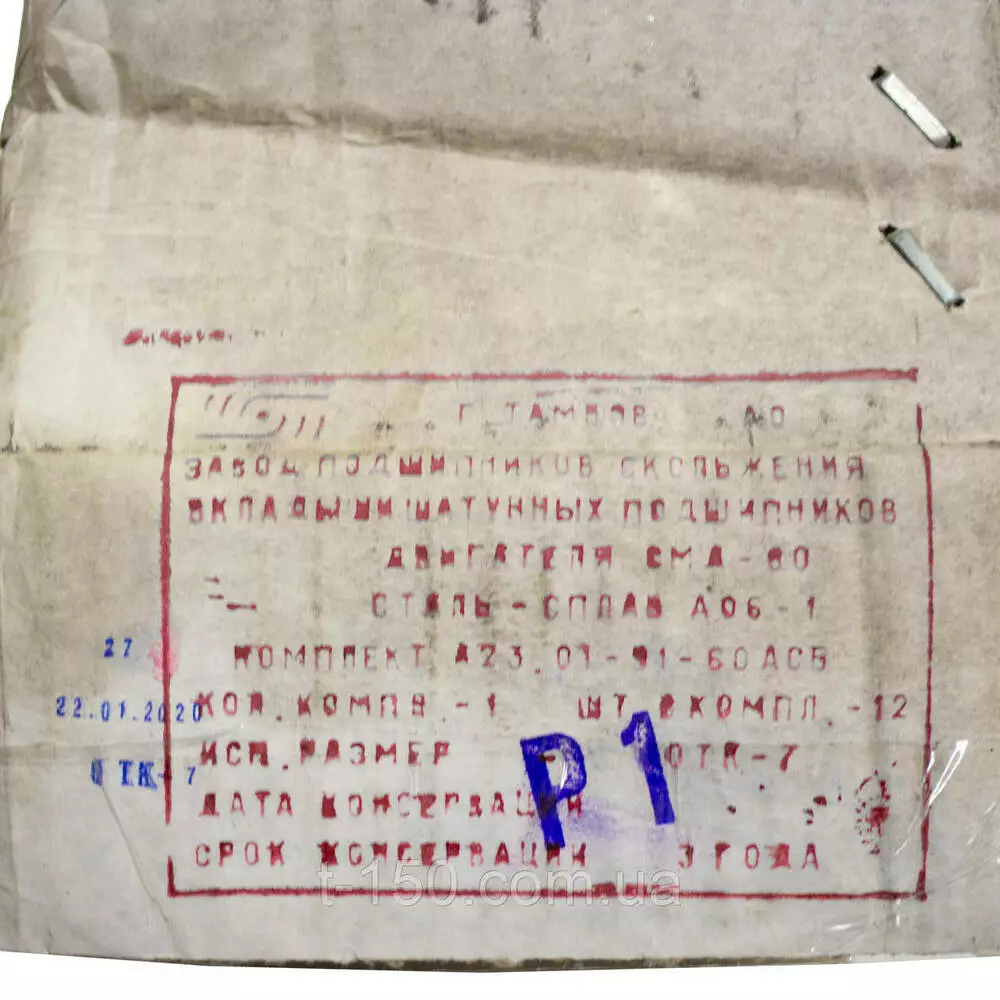 Г. ТАМБОВ АО
ЗАВОД ПОДШИПНИКОВ СКОЛЬЖЕНИЯ
ВКЛАДЫШИ ШАТУННЫХ ПОДШИПНИКОВ
ДВИГАТЕЛЯ СМД-60
СТАЛЬ-СПЛАВ АО6-1
27 КОМПЛЕКТ А23.01-91-60АСБ
22.01.2020 КОЛ. КОМПЛ. -1 ШТ. В КОМПЛ. -12
ИСП. РАЗМЕР - ОТК-7
Р1
ОТК-7
ДАТА КОНСЕРВАЦИИ
СРОК КОНСЕРВАЦИИ 3 ГОДА
t-150.com.ua